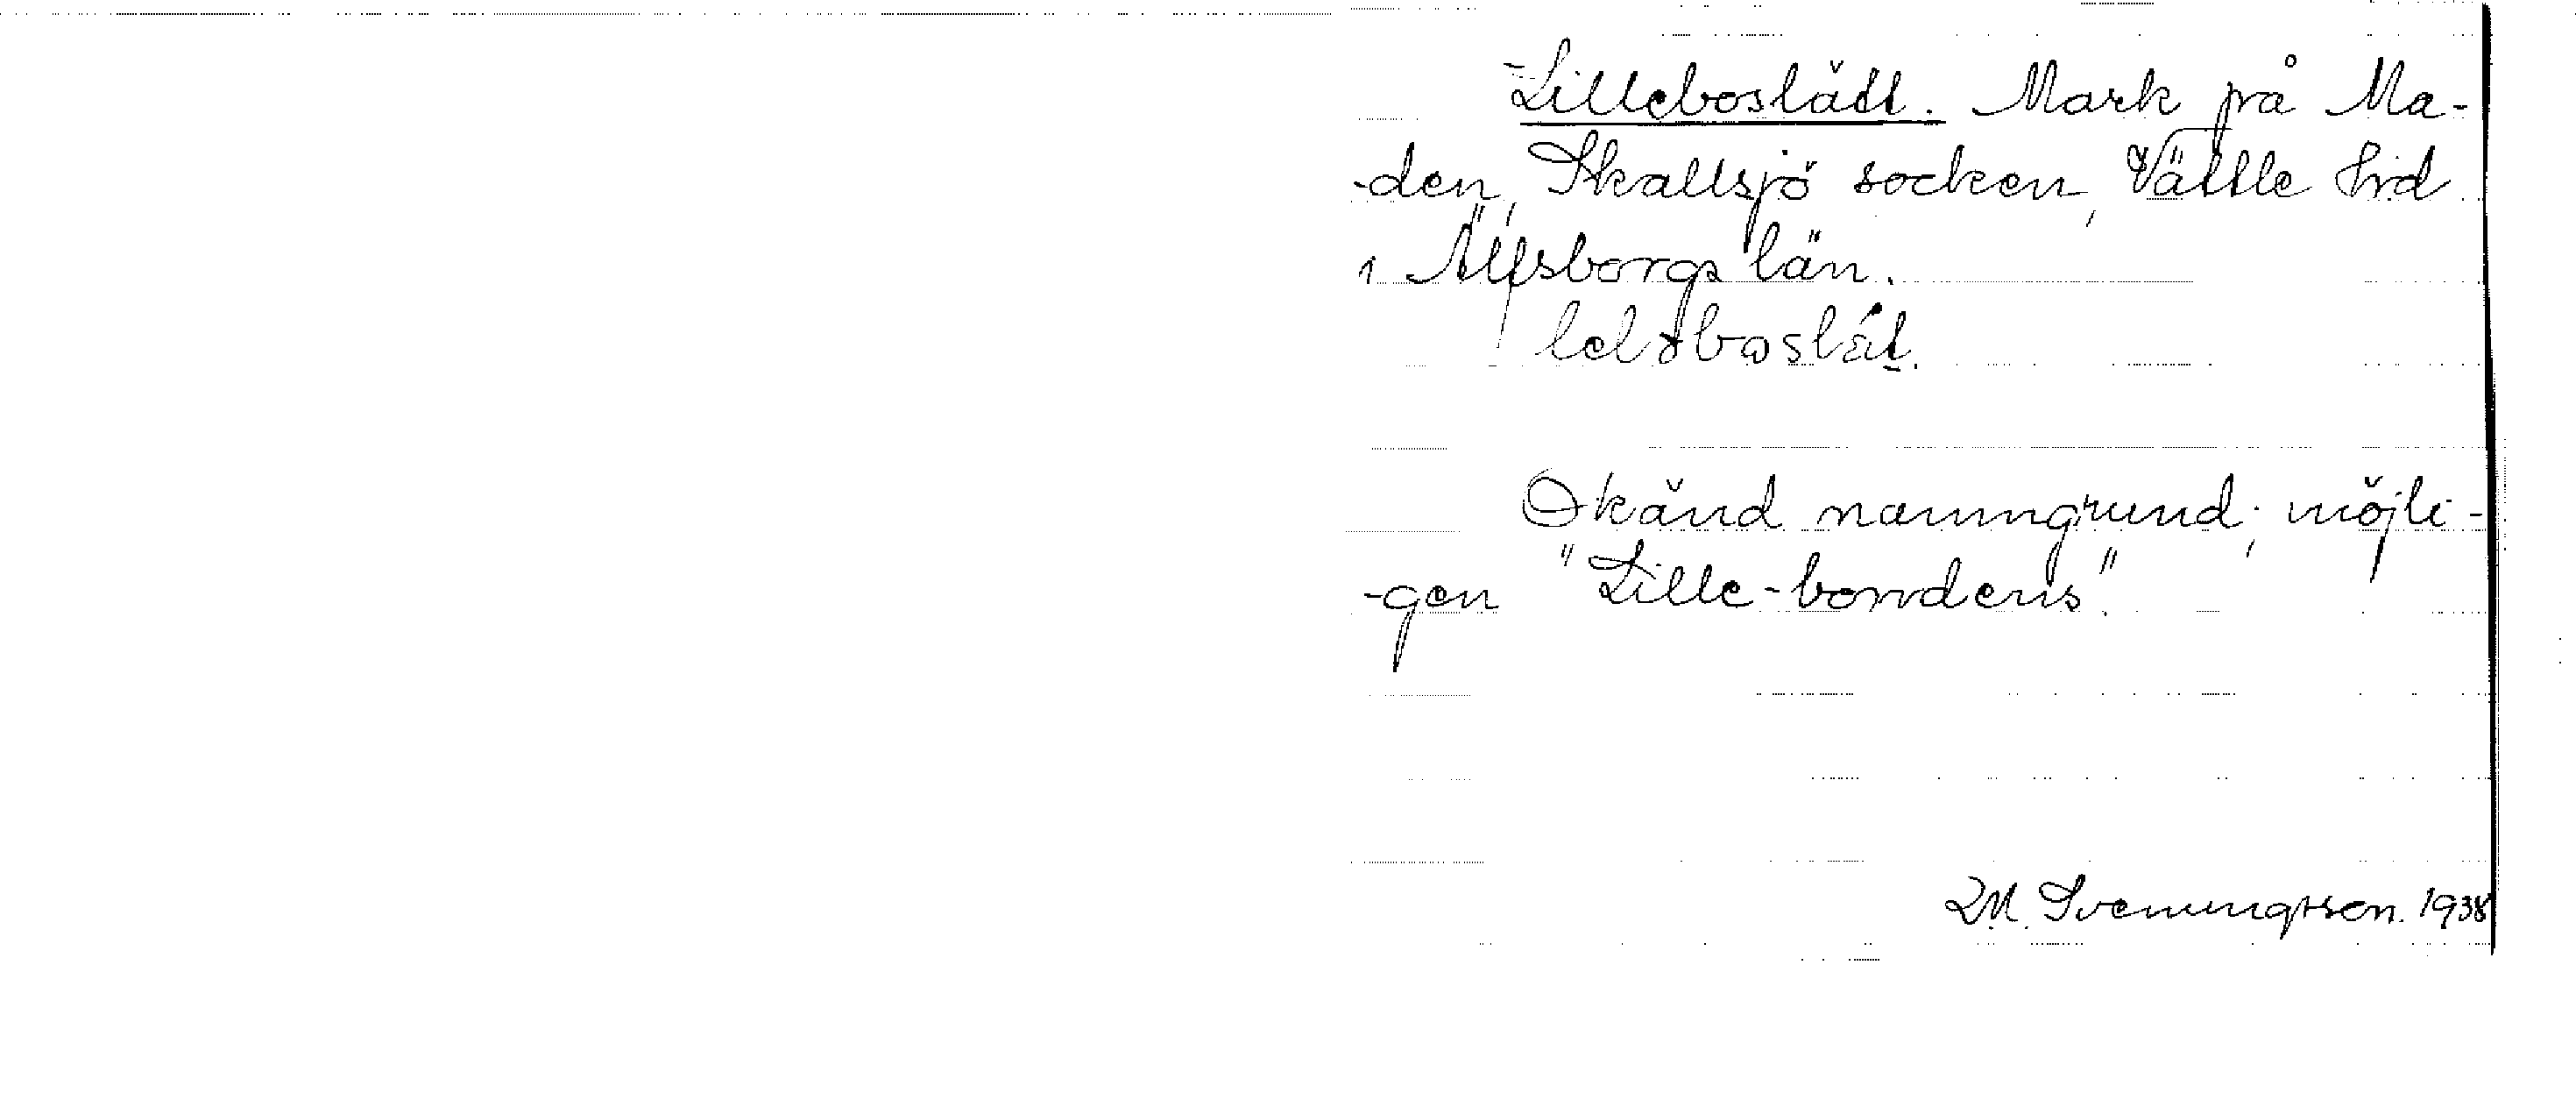 Lilleboslätt. Mark på Ma-
-den, Skallsjö socken, Vättle hrd
i Älfsborgs län.
Okänd namngrund; möjli-
-gen "Lille-bondens".
Svenungsson. 1938